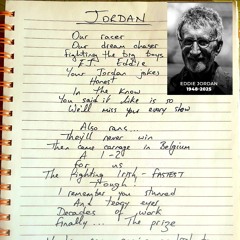 JORDAN
Our racer
Our dream chaser
Fighting the big boys
Eddie
Your Jordan jokes
Honest
In the know
You said it like it is so
We'll miss your every show
Also rans...
They'll never win
Then came carnage in Belgium
A 1-2
For us
The Fighting Irish - FASTEST
Though!
I remember you stunned
And teary eyes
Decades of work
Finally... The prize
EDDIE JORDAN
1948-2025